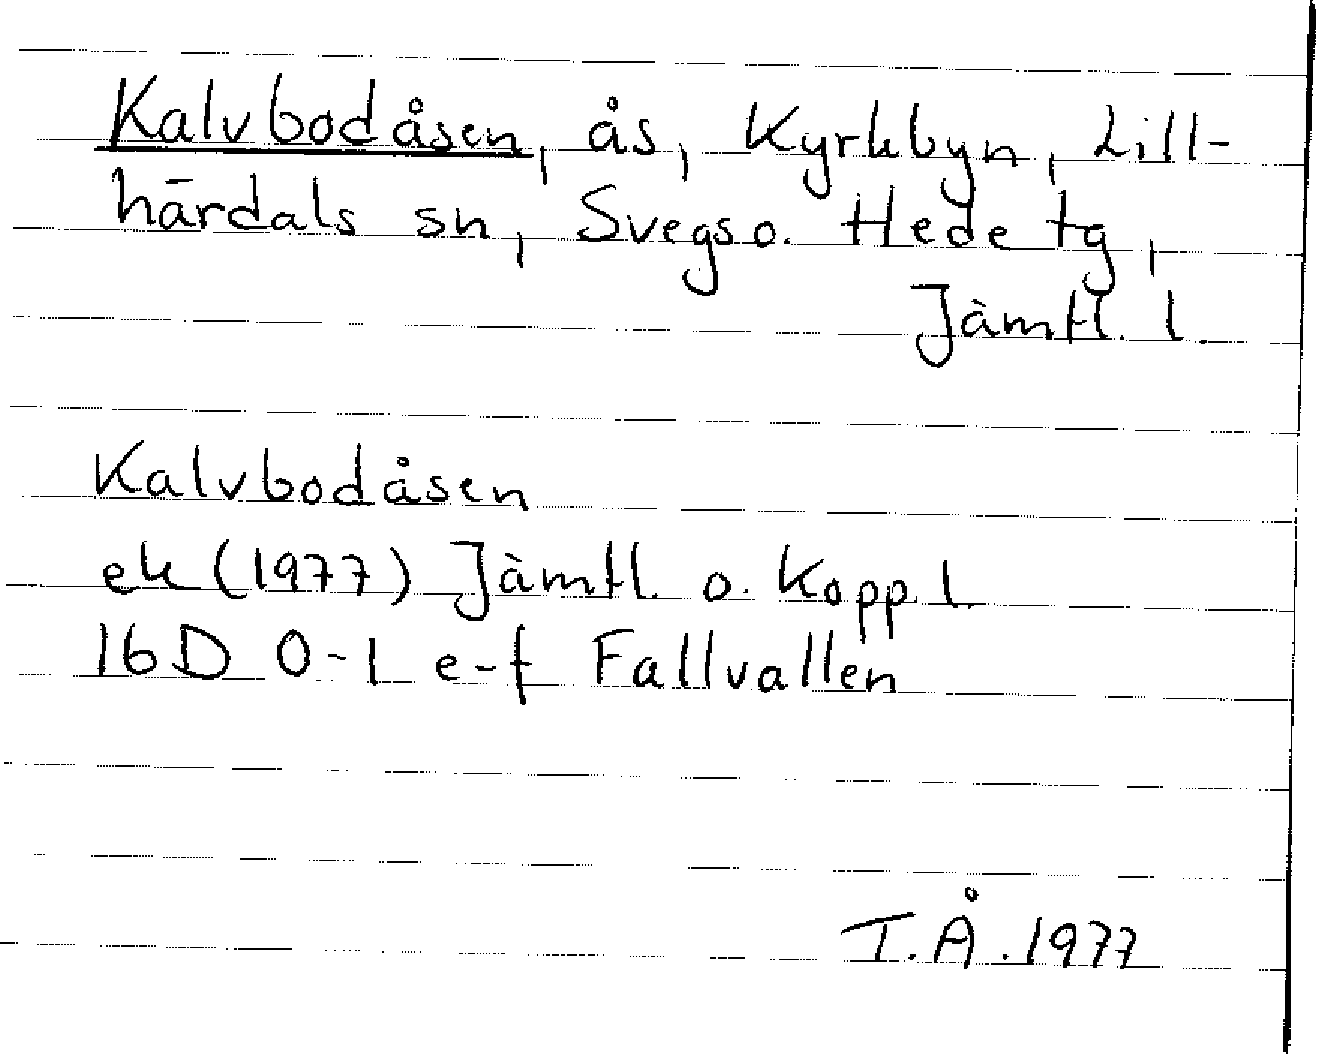 Kalvbodåsen, ås, Kyrkbyn, Lill-
härdals sn, Svegs o. Hede tg,
Jämtl. l.
Kalvbodåsen
ek (1977) Jämtl. o. Kopp l.
16D 0-1 e-f Fallvallen
I.Å. 1977